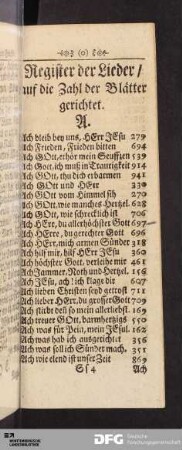 (o)
Register der Lieder /
auf die Zahl der Blätter
gerichtet.
A.
Ach bleib bey uns, HErr JEsu 279
Ach Frieden, Frieden bitten 694
Ach GOtt, erhör mein Seuffzen 539
Ach Gott, ich muß in Traurigkeit 914
Ach GOtt, thu dich erbarmen 941
Ach GOtt und HErr 339
Ach GOtt vom Himmel sih 270
Ach GOtt, wie manches Hertzel. 628
Ach GOtt, wie schrecklich ist 706
Ach HErr, du allerhöchster Gott 697
Ach HErre, du gerechter Gott 696
Ach HErr, mich armen Sünder 318
Ach hilf mir, hilf HErr JEsu 360
Ach höchster Gott, verleihe mir 461
Ach Jammer, Noth und Hertzel. 156
Ach JEsu, ach! ich klage dir 607
Ach lieben Christen seyd getrost 711
Ach lieber HErr, du grosser Gott 709
Ach stirbt denn so mein allerliebst. 169
Ach treuer GOtt, barmhertzigs 550
Ach was für Pein, mein JEsul. 162
Ach was hab ich ausgerichtet 356
Ach was soll ich Sünder mach. 351
Ach wie elend ist unser Zeit 869
Ss 4
Ach
DFG
Deutsche
Forschungsgemeinschaft